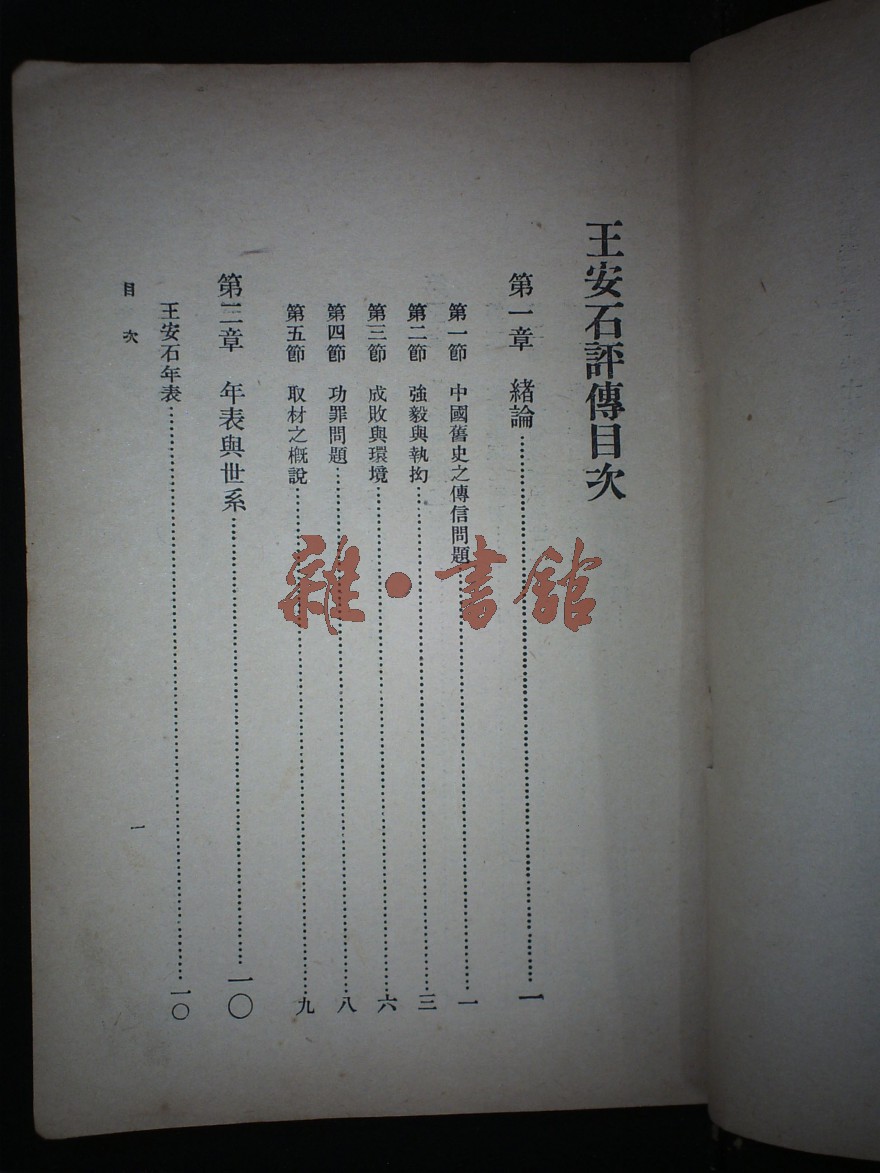 王安石評傳目次
第一章 緒論……一
第一節 中國舊史之傳信問題……一
第二節 強毅與執拗……三
第三節 成敗與環境……六
第四節 功罪問題……八
第五節 取材之概說……九
第二章 年表與世系……一〇
王安石年表……一〇
目次
一
雜·書館